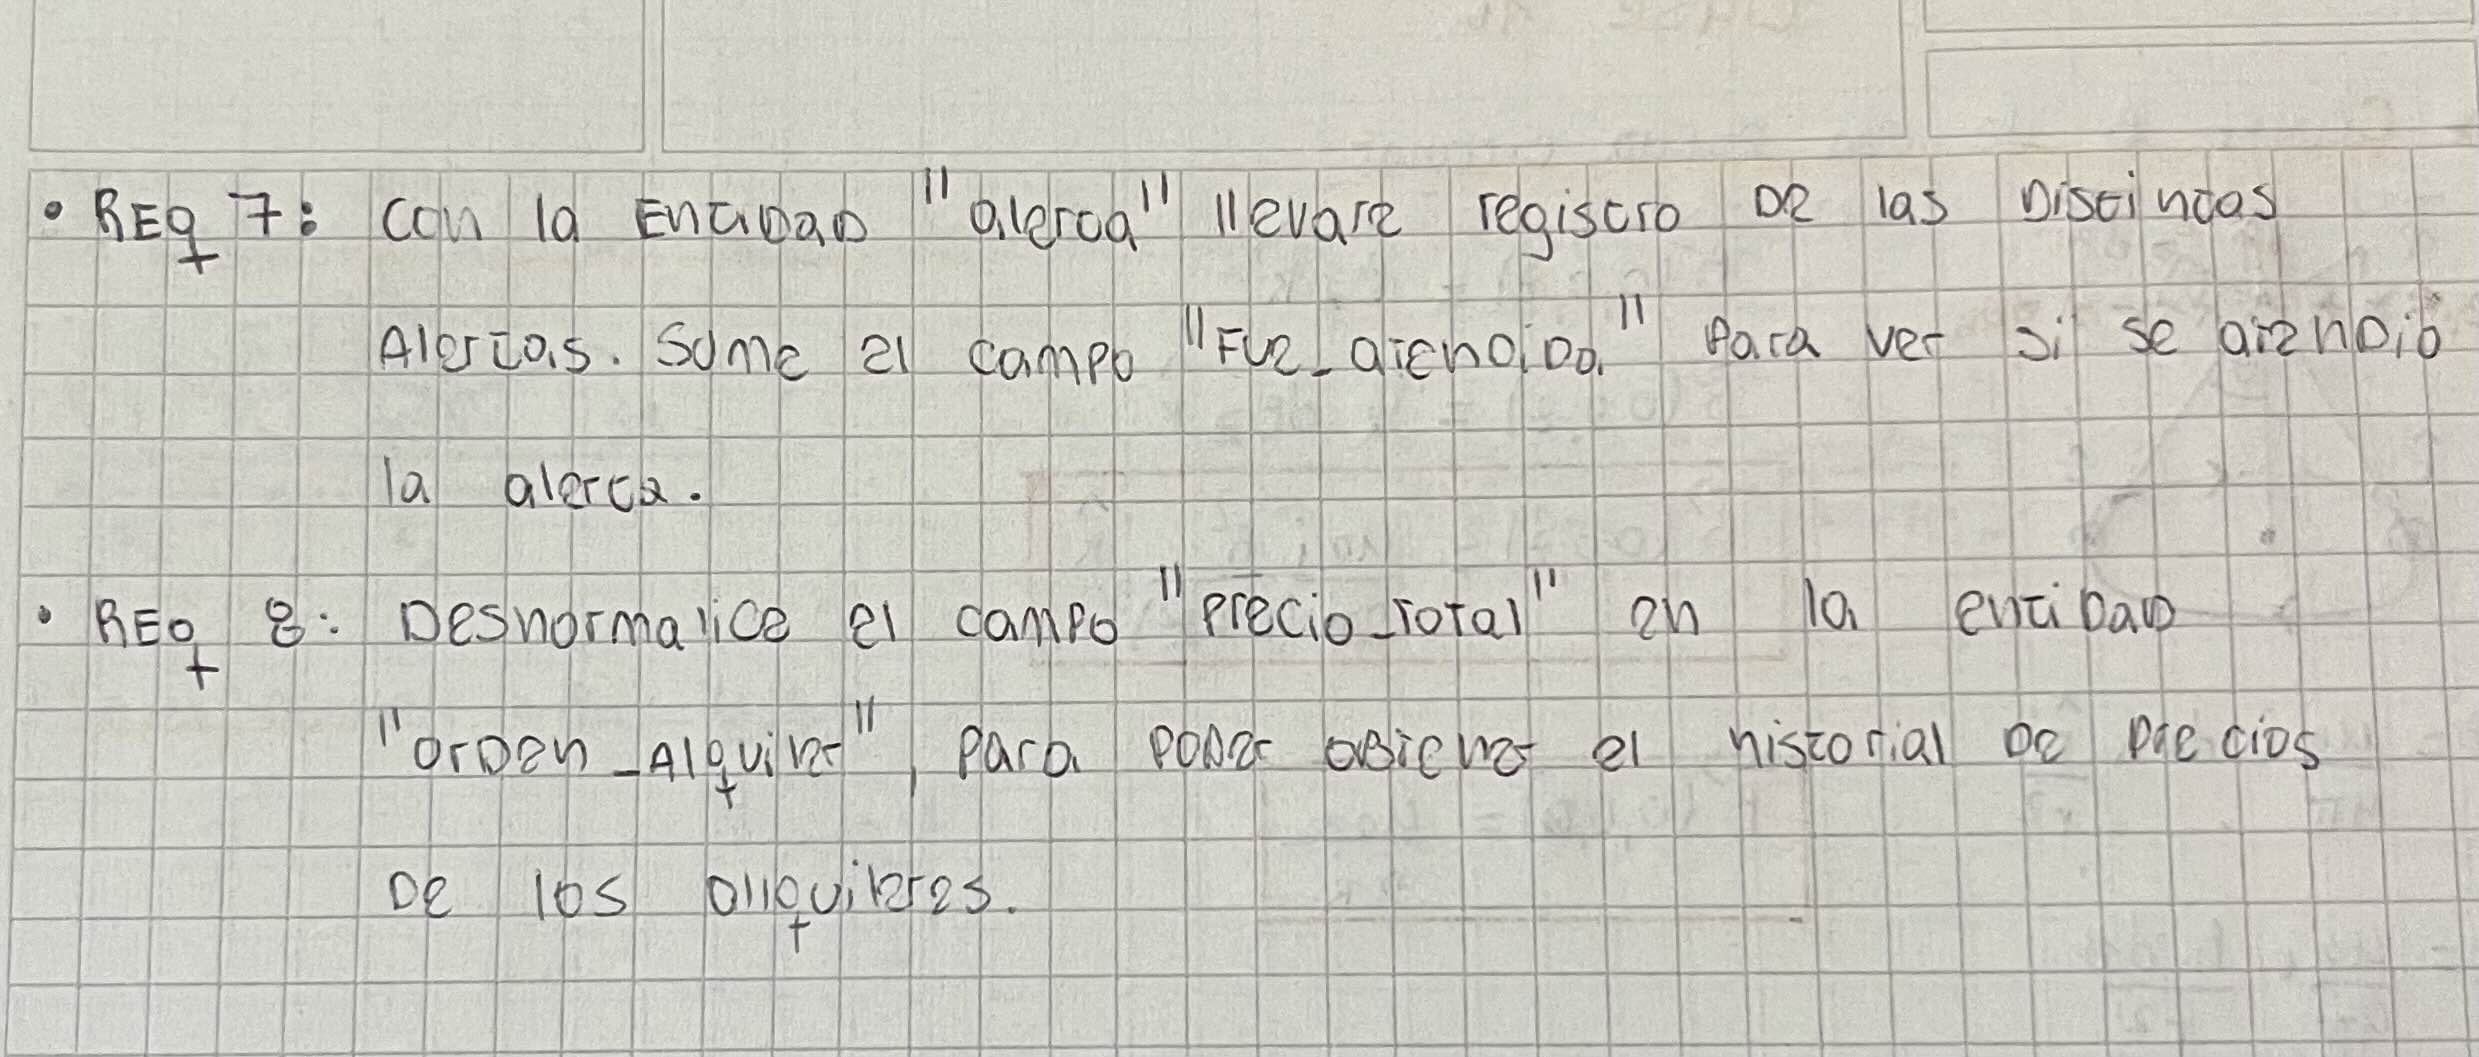 • REQ 7: Con la Entidad "alerta" llevare registro De las Distintas
Alertas. Sume el campo "Fue_atendida" Para ver si se atendió
la alerta.
• REQ 8: Desnormalice el campo "Precio_Total" en la entidad
"orden_Alquiler", Para Poder obtener el historial De Precios
De los alquileres.